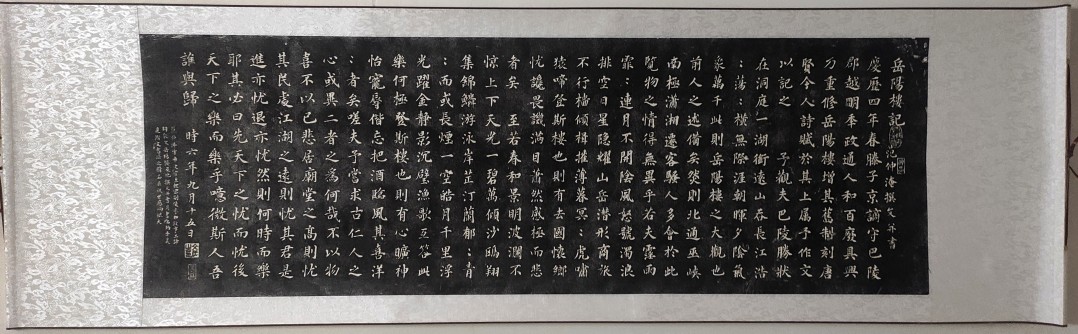 岳陽樓記 范仲淹撰文并書
慶曆四年春滕子京謫守巴陵
郡越明年政通人和百廢具興
乃重修岳陽樓增其舊制刻唐
賢今人詩賦於其上属予作文
以記之 予觀夫巴陵勝狀
在洞庭一湖銜遠山吞長江浩
:蕩:橫無際涯朝暉夕陰氣
象萬千此則岳陽樓之大觀也
前人之述備矣然則北通巫峽
南極瀟湘遷客騷人多會於此
覽物之情得無異乎若夫霪雨
霏:連月不開陰風怒號濁浪
排空日星隱耀山岳潛形商旅
不行檣傾楫摧薄暮冥:虎嘯
猿啼登斯樓也則有去國懷鄉
忧讒畏譏滿目蕭然感極而悲
者矣 至若春和景明波瀾不
惊上下天光一碧萬傾沙鷗翔
集錦鱗游泳岸芷汀蘭郁:青
:而或長煙一空皓月千里浮
光躍金静影沉璧漁歌互答此
樂何極登斯樓也則有心曠神
怡寵辱偕忘把酒臨風其喜洋
:者矣嗟夫予嘗求古仁人之
心或異二者之為何哉不以物
喜不以己悲居廟堂之高則忧
其民處江湖之遠則忧其君是
進亦忧退亦忧然則何時而樂
耶其必曰先天下之忧而忧後
天下之樂而樂乎噫微斯人吾
誰與歸 時六年九月十五日